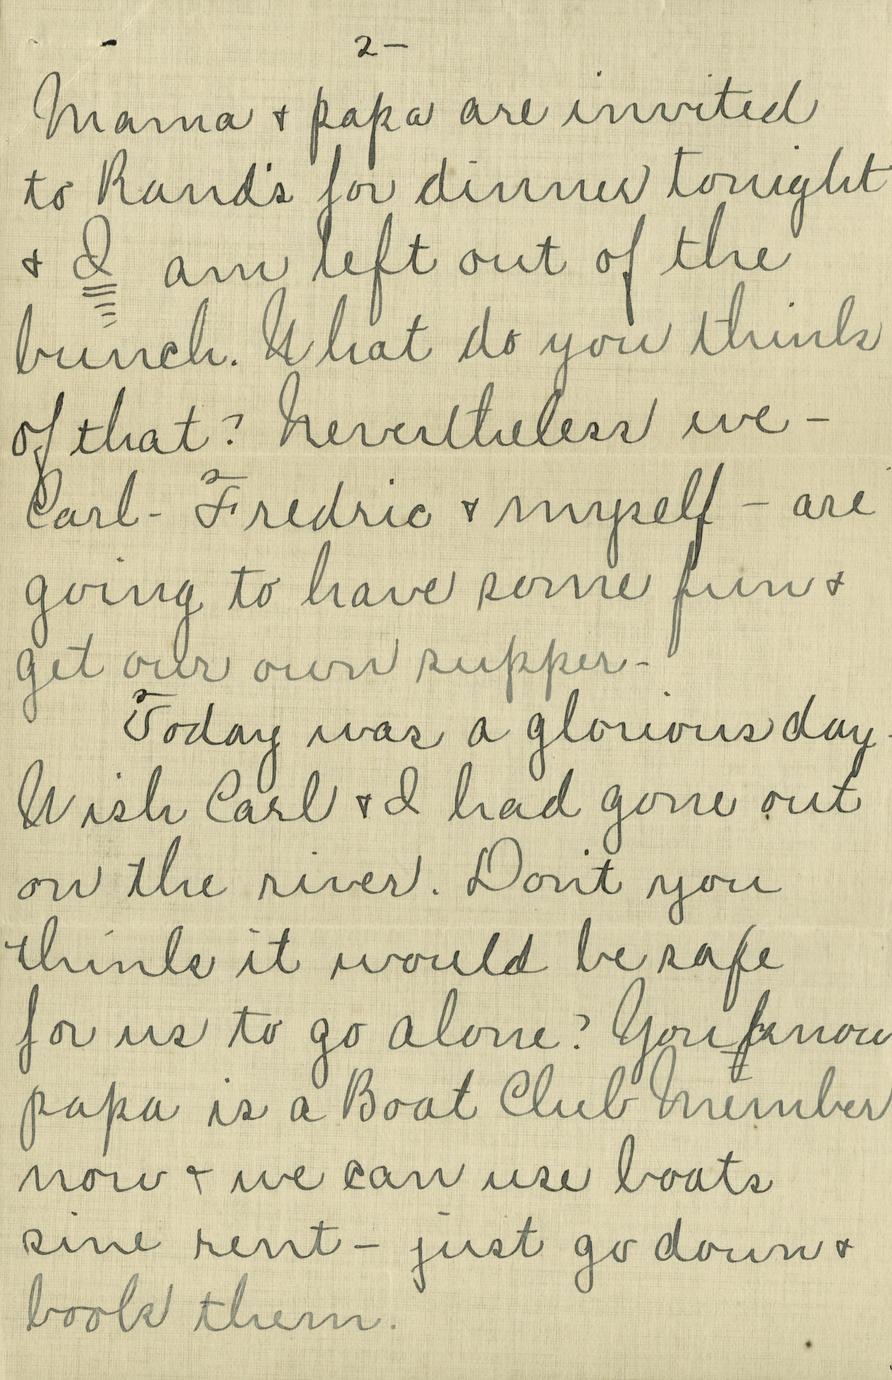 2-
Mama & papa are invited
to Rand's for dinner tonight
& I am left out of the
bunch. What do you think
of that? Nevertheless we -
Carl - Fredric & myself - are
going to have some fun &
get our own supper -
Today was a glorious day.
Wish Carl & I had gone out
on the river. Don't you
think it would be safe
for us to go alone? You know
papa is a Boat Club Member
now & we can use boats
sine rent - just go down &
book them.